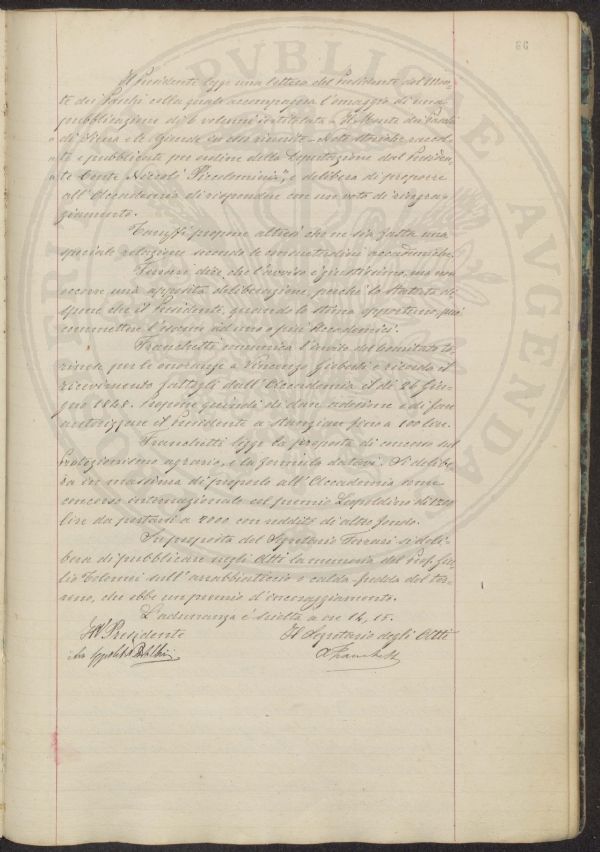 Il Presidente legge una lettera del Presidente del Mon-
te dei Paschi colla quale accompagna l'omaggio di una
pubblicazione di 6 volumi intitolata "Il Monte dei Paschi
" di Siena e le Aziende in esso riunite - Note storiche raccol-
" te e pubblicate per ordine della Deputazione dal Presiden-
" te Conte Niccolò Piccolomini", e delibera di proporre
all'Accademia di rispondere con un voto di ringra-
ziamento.
propone altresì che ne sia fatta una
speciale relazione secondo le consuetudini accademiche.
Ferrari dice che l'avviso è giustissimo, ma non
occorre una apposita deliberazione, perché lo Statuto di-
spone che il Presidente, quando lo stima opportuno, può
commettere l'esame ad uno o più Accademici.
Franchetti comunica l'invito del Comitato to-
rinese per le onoranze a Vincenzo Gioberti e ricorda il
ricevimento fattogli dall'Accademia il dì 26 Giu-
gno 1848. Propone quindi di dare adesione e di fare
autorizzare il Presidente a stanziare fino a 100 lire.
Franchetti legge la proposta di concorso sul
Protezionismo agrario, e la formula datane. Si delibe-
ra in massima di proporlo all'Accademia come
concorso internazionale col premio Leopoldino di 1200
lire da portarsi a 2000 con reddito di altro fondo.
Su proposta del Segretario Ferrari si deli-
bera di pubblicare negli Atti la memoria del Prof. Giu-
lio Tolomei sull'arrabbiaticcio o caldafredda del ter-
reno, che ebbe un premio d'incoraggiamento.
L'adunanza è sciolta a ore 14,15.
Il Presidente
Il Segretario degli Atti
A Franchetti
PVBLICAE
AVGENDA